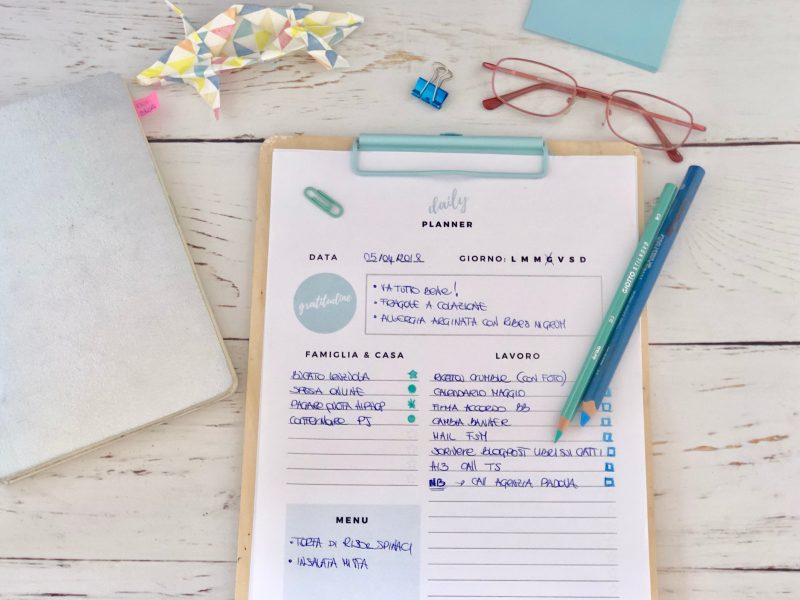 daily
PLANNER
DATA 05/04/2018 GIORNO: L M M G V S D
gratitudine
• VA TUTTO BENE!
• FRAGOLE A COLAZIONE
• ALLERGIA ARGINATA CON RIBES NIGRUM
FAMIGLIA & CASA
BUCATO LENZUOLA
SPESA ONLINE
PAGARE QUOTA HIPHOP
PJ
LAVORO
(CON FOTO)
CALENDARIO MAGGIO
FIRMA ACCORDO BB
CAMBIA BANNER
MAIL FSM
SCRIVERE BLOGPOST LIBRI SUI GATTI
CALL TS
NB → CALL AGENZIA PADOVA
MENU
• TORTA DI RISO E SPINACI
• INSALATA MISTA
GIOTTO STILNOVO